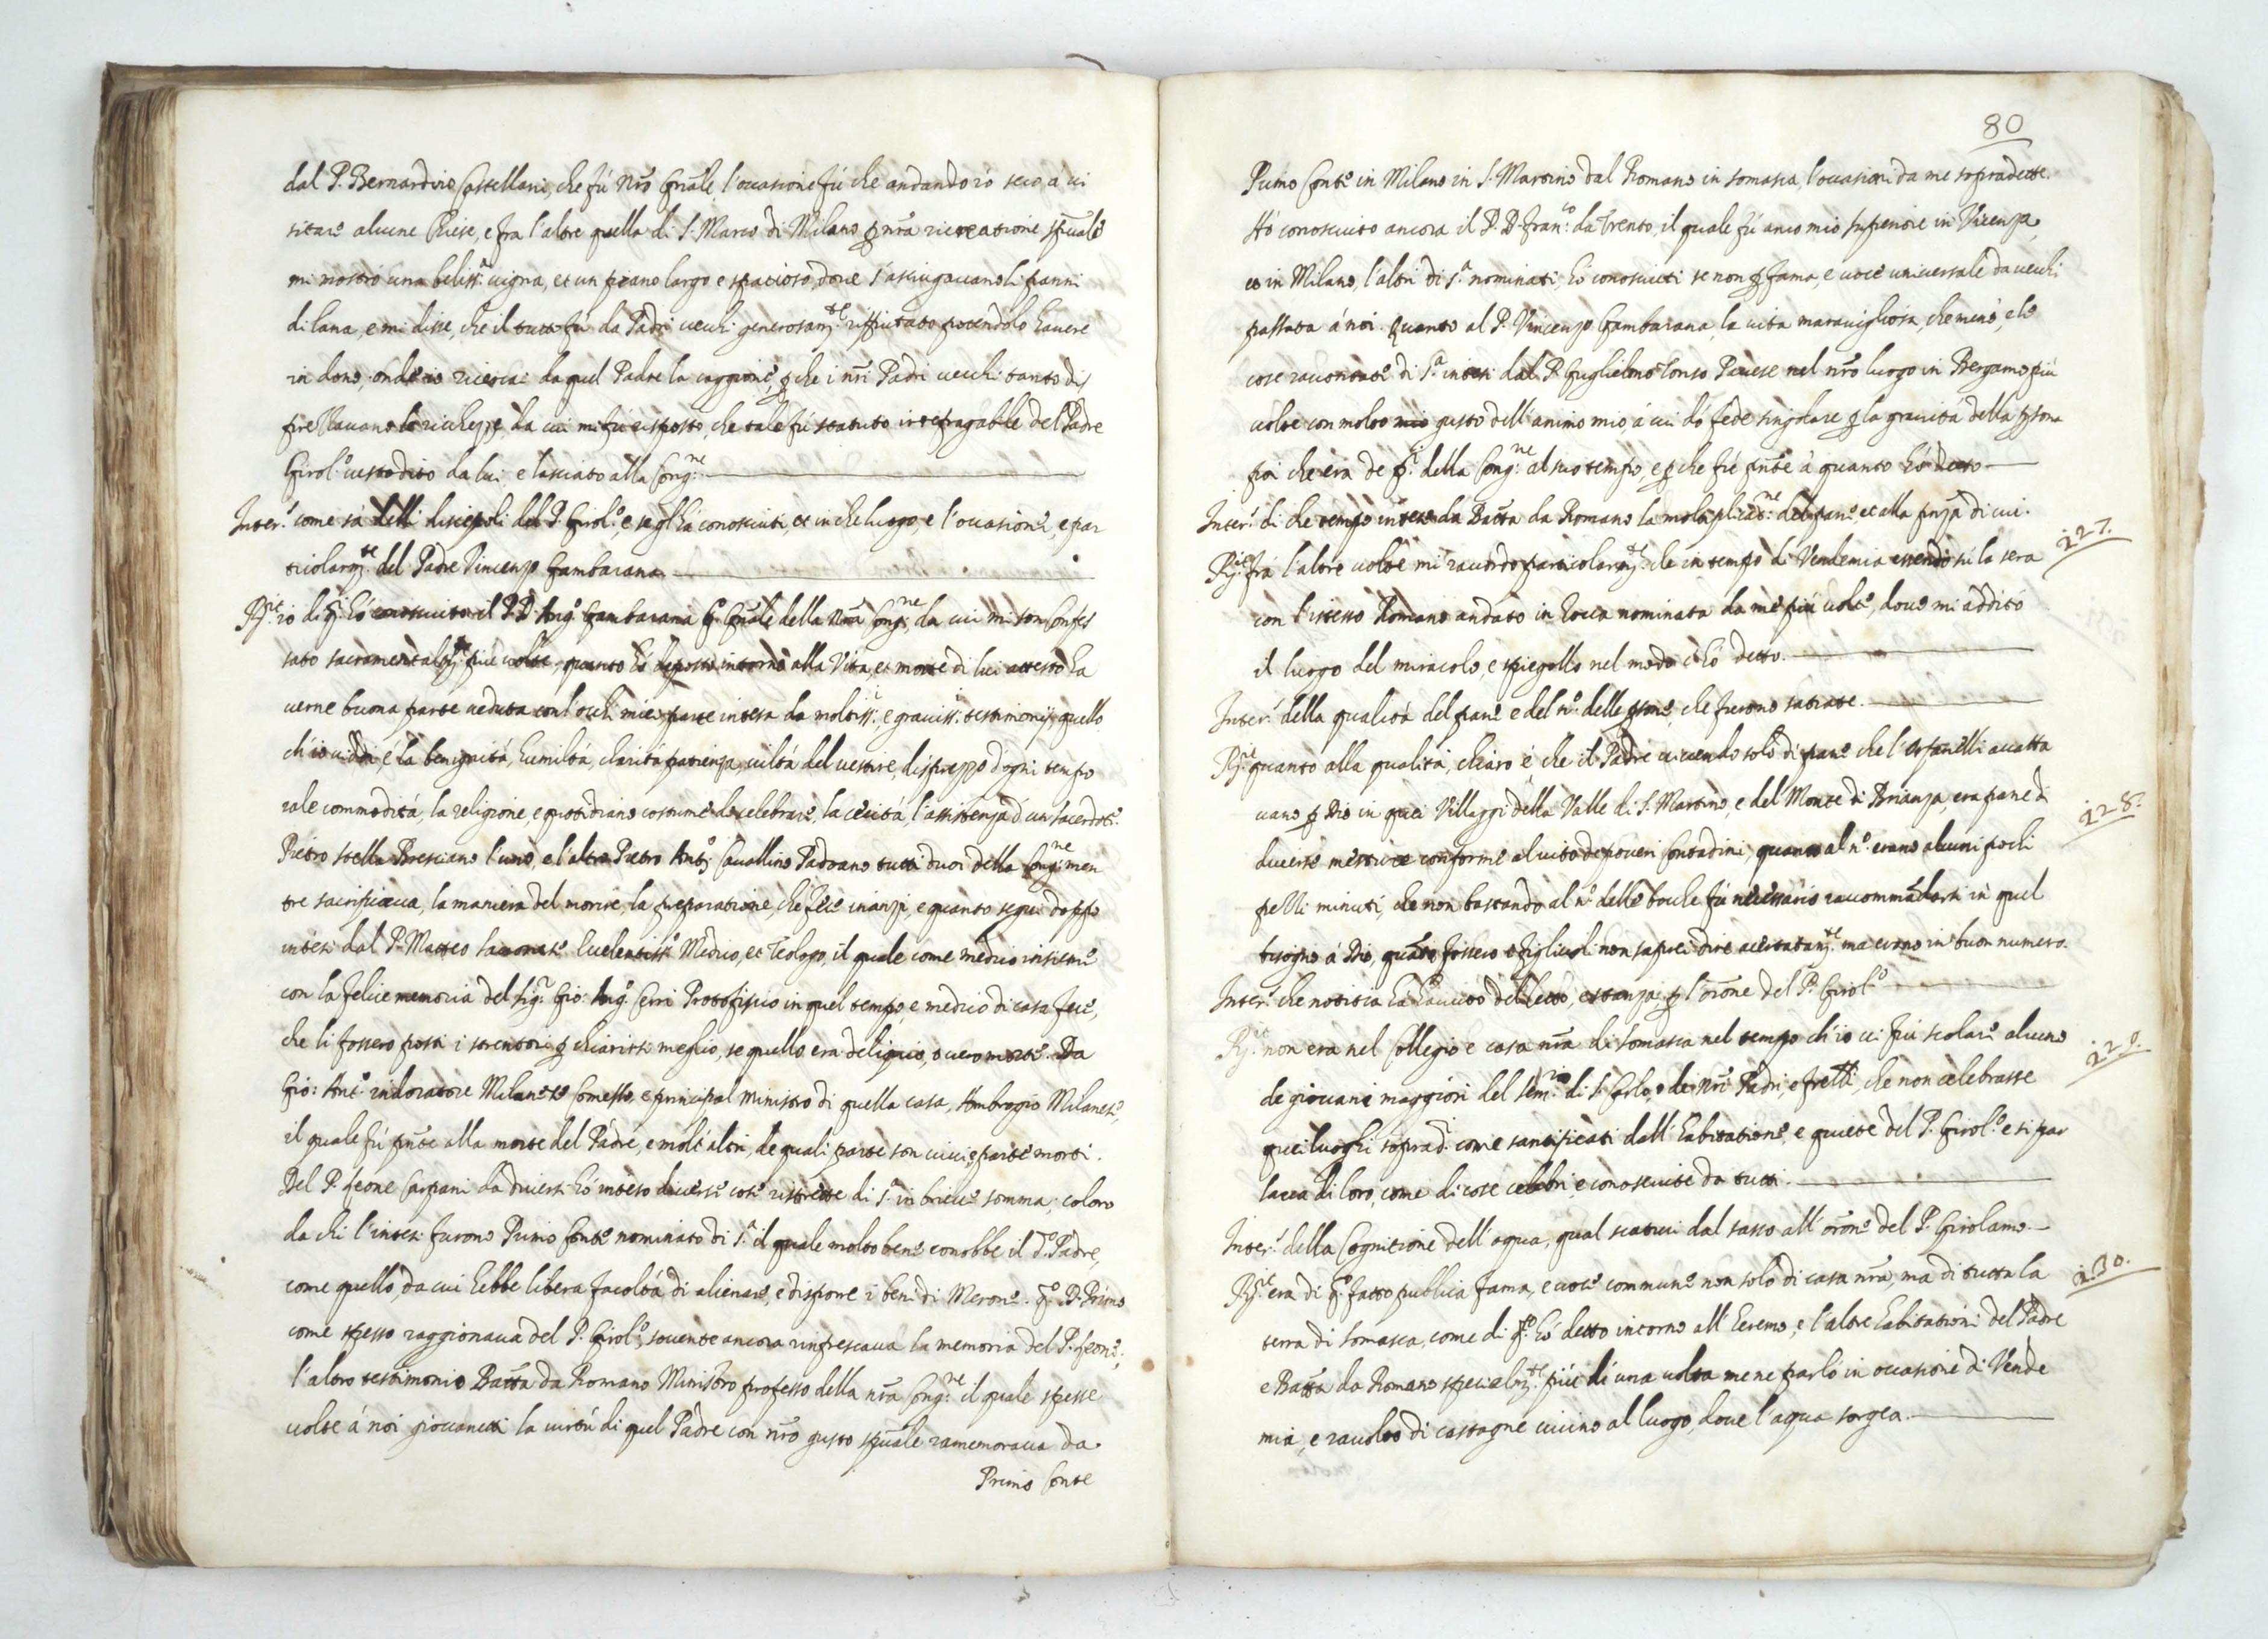 dal P. Bernardino Castellani, che fú Nr̃o Gñale, l'occasione fú che andando io seco, a ui
sitare alcune Chiese, e fra l'altre quella di S. Marco di Milano ꝑ nr̃a ricreatione spũale
mi mostró una beliss.ᵃ uigna, et un piano largo e spacioso, doue s'asciugauano li panni
di lana, e mi disse, che il tutto fú da Padri uechi generosam.ᵗᵉ riffiutato potendolo hauere
in dono, onde io ricercai da quel Padre la caggione, ꝑche i nr̃i Padri uechi tanto dis
prezzauano le richezze, da cui mi fú risposto, che tale fú statuto irrefragabile del Padre
Girol.º custodito da lui, e lasciato alla Cong.ⁿᵉ
Inter.ᵗ come sá delli discepoli del P. Girol.º, e se gl'há conosciuti, et in che luogo, e l'occasione, e par
ticolarm.ᵗᵉ del Padre Vincenzo Gambarana
Rx.ⁱᵗ io di q.ⁱ hó conosciuto il P. D. Ang.º Gambarana P.º Gñale della nr̃a Cong.ⁿᵉ, da cui mi son Confes
sato sacramentalm.ᵗᵉ piú uolte, quanto hó deposto intorno alla Vita, et morte di lui attesto ha
uerne buona parte ueduta con l'ochi miei, parte intesa da moltiss.ⁱ e grauiss.ⁱ testimonij, quello
ch'io uiddi, é la benignitá, humiltá, charitá patienza, uiltá del uestire, disprezzo d'ogni tempo
rale commoditá, la religione, e quotidiano costume de celebrare, la cecitá, l'assistenza d'un sacerdote
Pietro Stella Bresciano l'uno, e l'altro Pietro Ant.º Cauallino Padoano tutti duoi della Cong.ⁿᵉ men
tre sacrificaua, la maniera del morire, la preparatione, che fece inanzi, e quanto seguí doppo
intesi dal P. Matteo Eccelentiss.º Medico, et Teologo, il quale come medico insieme
con la felice memoria del Sig.ʳ Gio: Ang.º Cerri Protofisico in quel tempo, e medico di casa fece,
che li fossero posti i ꝑ chiarirsi meglio, se quello era deliquio, o uero morte. Da
Gio: Ant.º indoratore Milanese Comesso, e principal Ministro di quella casa, Ambrogio Milanese,
il quale fú pñte alla morte del Padre, e molt'altri, de quali parte son uiui, e parte morti.
Del P. Leone Carpani da diuersi hó inteso diuerse cose ristrette di s.ᵃ in breue somma; coloro
da chi l'intesi furono Primo Conte nominato di s.ᵃ il quale molto bene conobbe il d.º Padre,
come quello da cui hebbe libera facoltá di alienare, e disporre i beni di Merone. q.º D. Primo
come spesso raggionaua del P. Girol.º, souente ancora rinfrescaua la memoria del P. Leone;
l'altro testimonio Batt̃a da Romano Ministro professo della nr̃a Cong.ⁿᵉ il quale spesse
uolte á noi giouanetti la uirtú di quel Padre con nr̃o gusto spũale ramemoraua da
Primo Conte
80
Primo Conte in Milano in S. Martino dal Romano in Somasca, l'occasioni da me sopradette.
Hó conosciuto ancora il P. D. Fran.ᶜᵒ da Trento, il quale fú anco mio superiore in Vicenza,
et in Milano, l'altri di s.ᵃ nominati, hó conosciuti se non ꝑ fama, e uoce uniuersale da uechi
passata á noi. Quanto al P. Vincenzo Gambarana, la uita marauigliosa, che menò, e le
cose raccontate di s.ᵃ intesi dal P. Guglielmo Tonso Pauese nel nr̃o luogo in Bergamo piú
uolte con molto mio gusto dell'animo mio á cui dó fede singolare ꝑ la grauitá della ꝑsona
poi che era de p.ⁱ della Cong.ⁿᵉ al suo tempo, e ꝑche fú pñte á quanto hó detto
Inter.ᵗ di che tempo intese da Batt̃a da Romano la moltiplicat.ⁿᵉ del pane, et alla pñza di cui.
Rx.ⁱᵗ frá l'altre uolte mi racordo particolarm.ᵗᵉ che in tempo di Vendemia essendo sú la sera
con l'istesso Romano andato in Rocca nominata da me piú uolte, doue mi additò
il luogo del miracolo, e spiegollo nel modo c'hó detto.
Inter.ᵗ della qualitá del pane e del n.º delle ꝑsone, che furono satiate.
Rx.ⁱᵗ quanto alla qualitá, chiaro é che il Padre uiuendo solo di pane che l'orfanelli accatta
uano ꝑ Dio in quei Villaggi della Valle di S. Martino, e del Monte di Brianza, era pane di
diuerse mesture conforme al uito de poueri Contadini, quanto al n.º erano alcuni pochi
pezzi minuti, che non bastando al n.º delle boche fú necessario raccommãdarsi in quel
bisogno á Dio, quãti fossero e figliuoli non saprei dire accertatam.ᵗᵉ ma erano in buon numero.
Inter.ᵗ che notitia há hauuto del letto, e stanza ꝑ l'or̃one del P. Girol.º
Rx.ⁱᵗ non era nel Collegio e casa nr̃a di Somasca nel tempo ch'io ui fui scolare alcuno
de giouani maggiori del Sem.ʳⁱᵒ di S. Carlo, e dei nr̃i Padri, e fratelli, che non celebrasse
quei luoghi soprad.ⁱ come santificati dall'habitatione, e quiete del P. Girol.º e si par
laua di loro, come di cose celebri, e conosciute da tutti.
Inter.ᵗ della Cognitione dell'aqua, qual scaturí dal sasso all'or̃one del P. Girolamo
Rx.ⁱᵗ era di q.º fatto publica fama, e uoce commune non solo di casa nr̃a, ma di tutta la
terra di Somasca, come di q.º hó detto intorno all'heremo, e l'altre habitationi del Padre
e Batt̃a da Romano specialm.ᵗᵉ piú di una uolta me ne parló in occasione di Vende
mia, e racolto di castagne uicino al luogo, doue l'aqua sorgea.
127.
128.
129.
130.